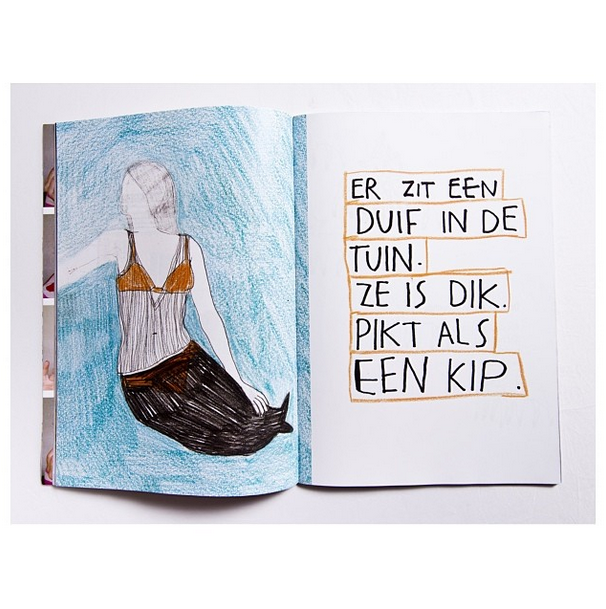 ER ZIT EEN
DUIF IN DE
TUIN.
ZE IS DIK.
PIKT ALS
EEN KIP.